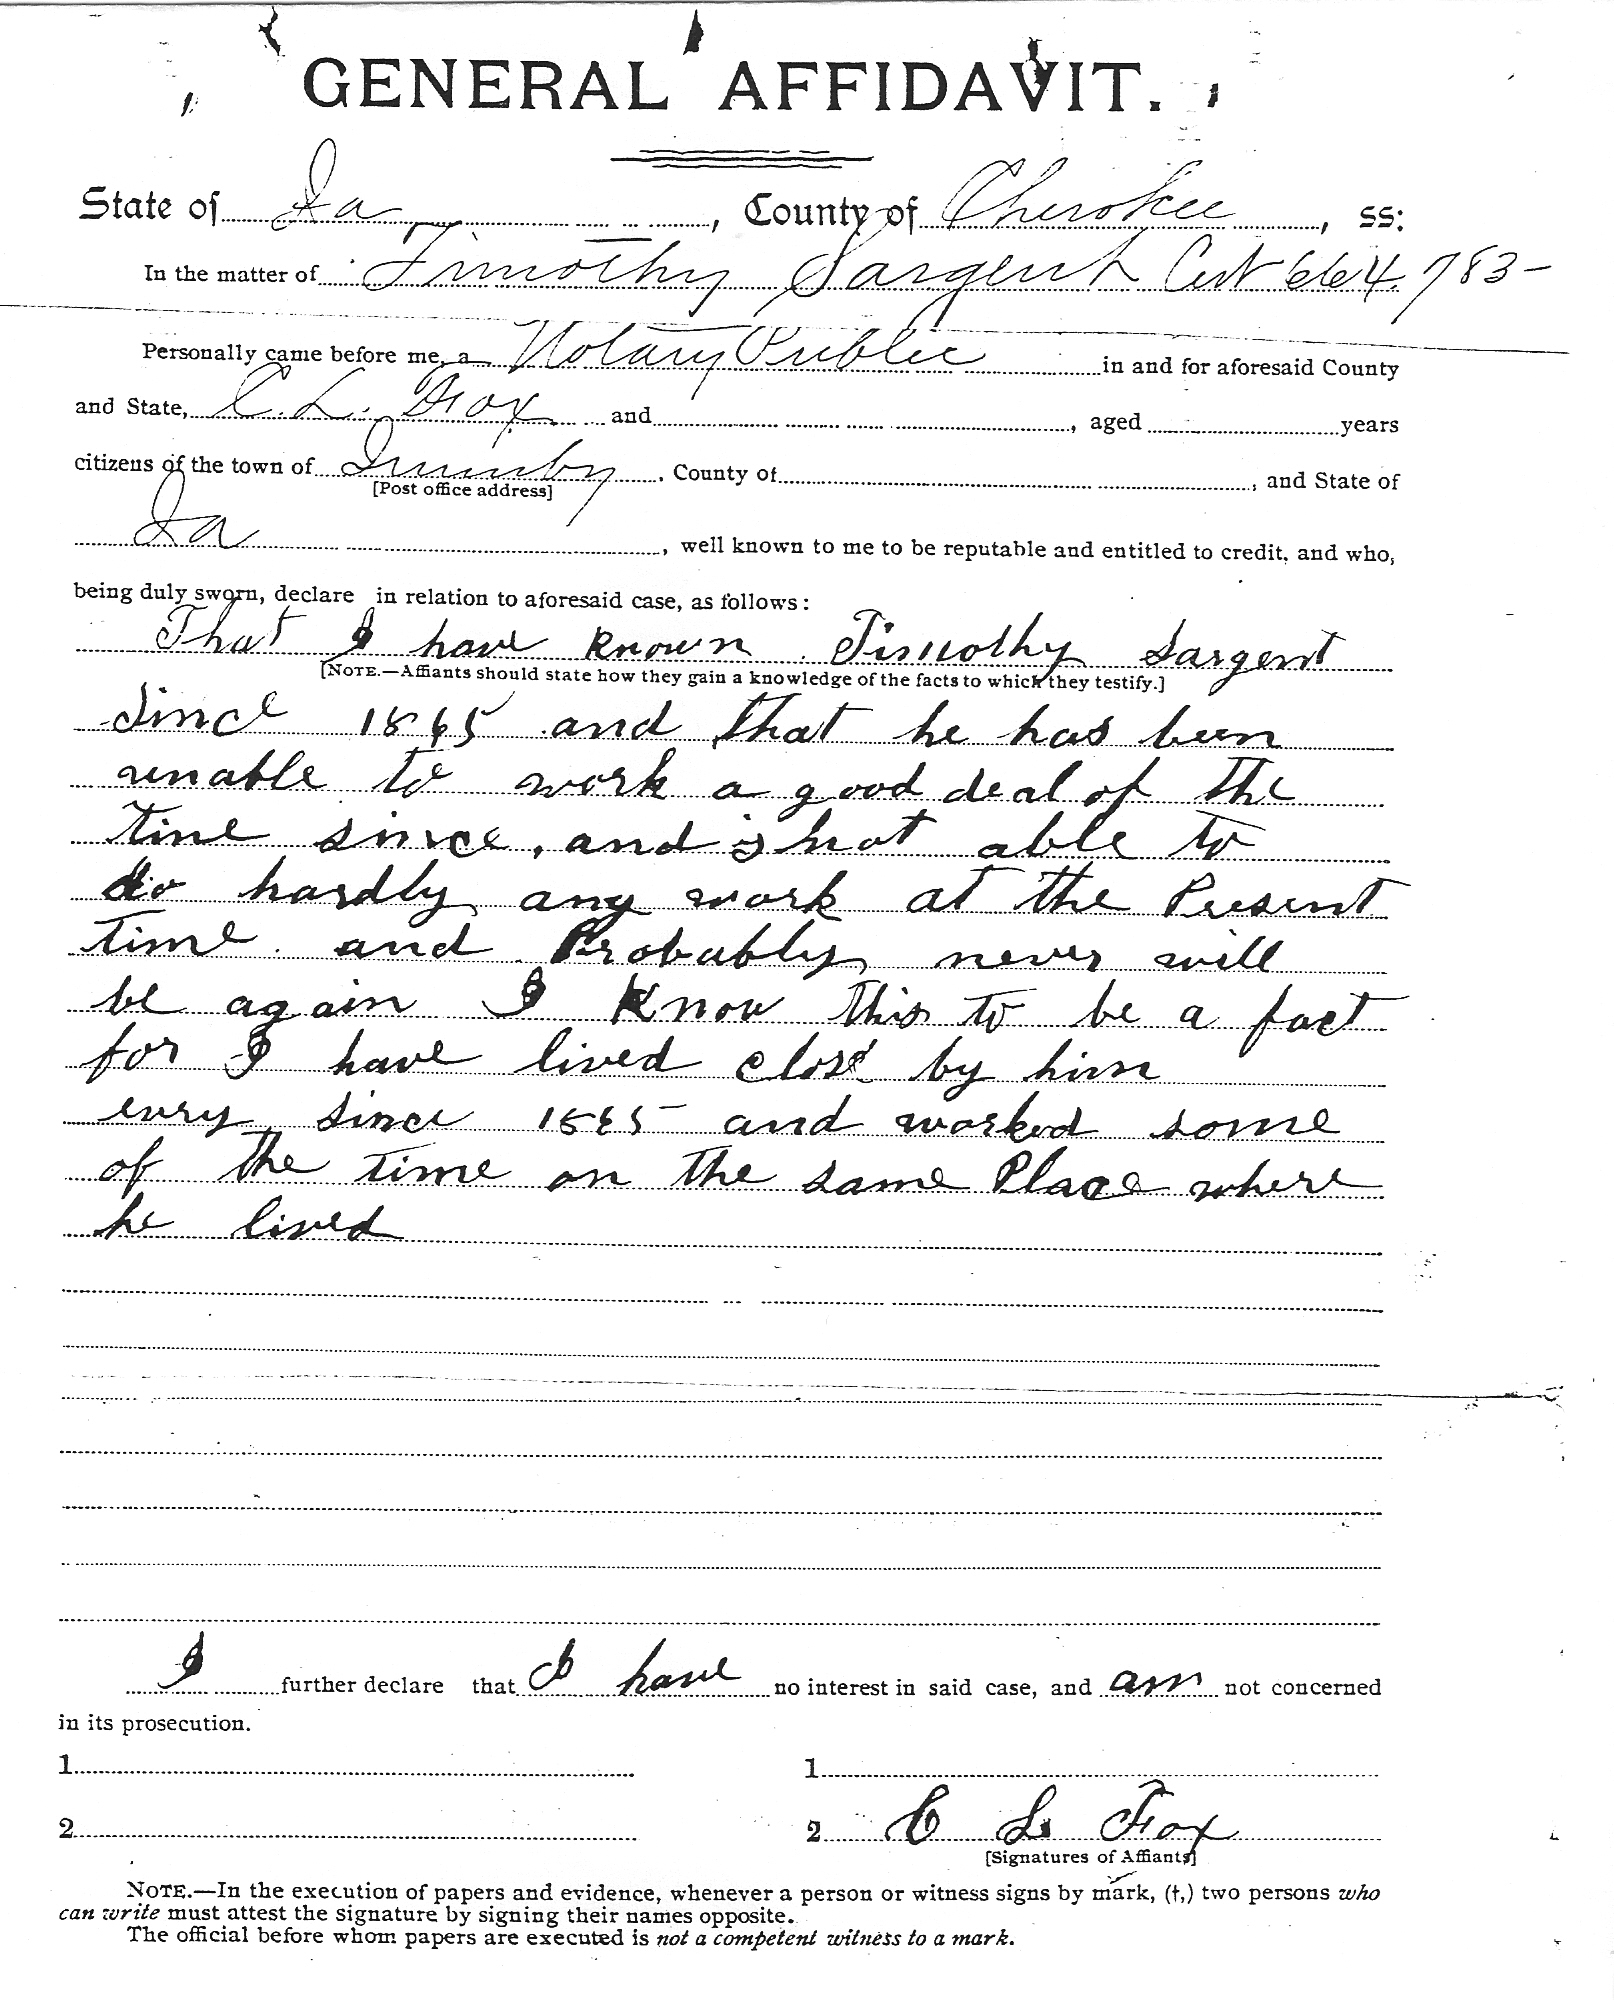 GENERAL AFFIDAVIT.
State of Ia, County of Cherokee, ss:
In the matter of Timothy Sargent Cert 664.783-
Personally came before me, a Notary Public in and for aforesaid County
and State, C. L. Fox and , aged years
citizens of the town of Quimby, County of , and State of
[Post office address]
Ia, well known to me to be reputable and entitled to credit, and who,
being duly sworn, declare in relation to aforesaid case, as follows:
That I have known Timothy Sargent
[NOTE.—Affiants should state how they gain a knowledge of the facts to which they testify.]
since 1865 and that he has been
unable to work a good deal of the
time since, and is not able to
do hardly any work at the Present
time and Probably never will
be again I Know this to be a fact
for I have lived close by him
every since 1865 and worked some
of the time on the same Place where
he lived
I further declare that I have no interest in said case, and am not concerned
in its prosecution.
1 1
2 2 C L Fox
[Signatures of Affiants]
NOTE.—In the execution of papers and evidence, whenever a person or witness signs by mark, (†,) two persons who
can write must attest the signature by signing their names opposite.
The official before whom papers are executed is not a competent witness to a mark.